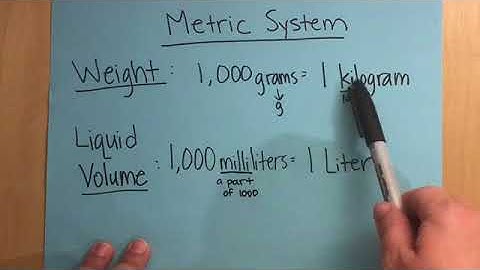 Metric System
Weight: 1,000 grams = 1 kilogram
g
Liquid
Volume: 1,000 milliliters = 1 Liter
a part
of 1000